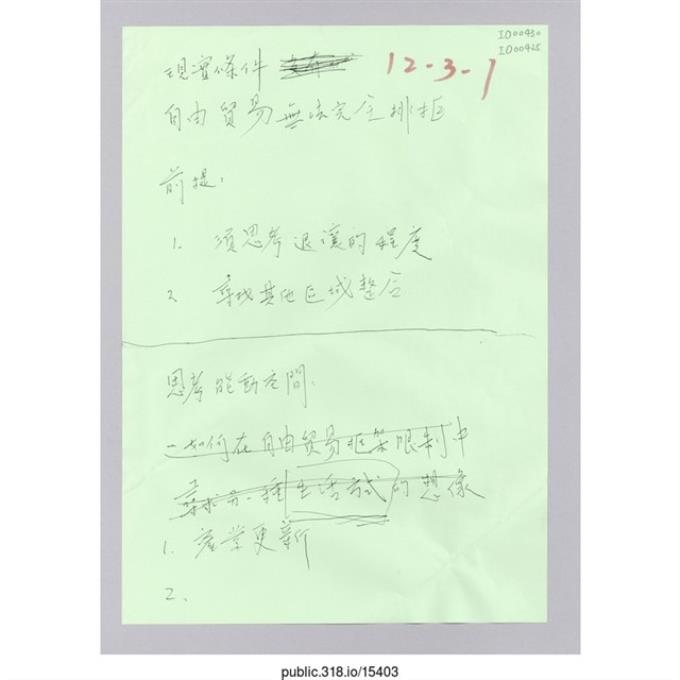 ID00430
ID00425
現實條件
12-3-1
自由貿易無法完全排拒
前提：
1. 須思考退讓的程度
2 尋找其他區域整合
思考能動空間：
－如何在自由貿易框架限制中
尋求另一種生活方式的想像
1. 產業更新
2、
public.318.io/15403